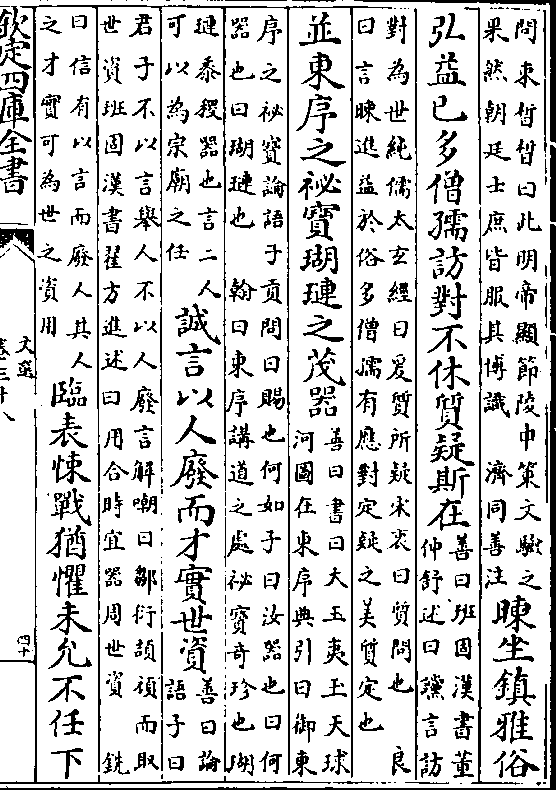 問束晳晳曰此明帝顯節陵中策文驗之
果然朝廷士庶皆服其博識 濟同善注
暕坐鎮雅俗
弘益已多僧孺訪對不休質疑斯在
善曰班固漢書董
仲舒述曰讜言訪
對為世純儒太玄經曰爰質所疑宋衷曰質問也 良
曰言暕進益於俗多僧孺有應對定疑之美質定也
並東序之祕寳瑚璉之茂器
善曰書曰大玉夷玉天球
河圖在東序典引曰御東
序之祕寶論語子貢問曰賜也何如子曰汝器也曰何
器也曰瑚璉也 翰曰東序講道之處祕寶奇珍也瑚
璉黍稷器也言二人
可以為宗廟之任
誠言以人廢而才實世資
善曰論
語子曰
君子不以言舉人不以人廢言解嘲曰鄒衍頡頏而取
世資班固漢書翟方進述曰用合時宜器周世資 銑
曰信有以言而廢人其人
之才實可為世之資用
臨表悚戰猶懼未允不任下
欽定四庫全書
文選
卷三十八
四十